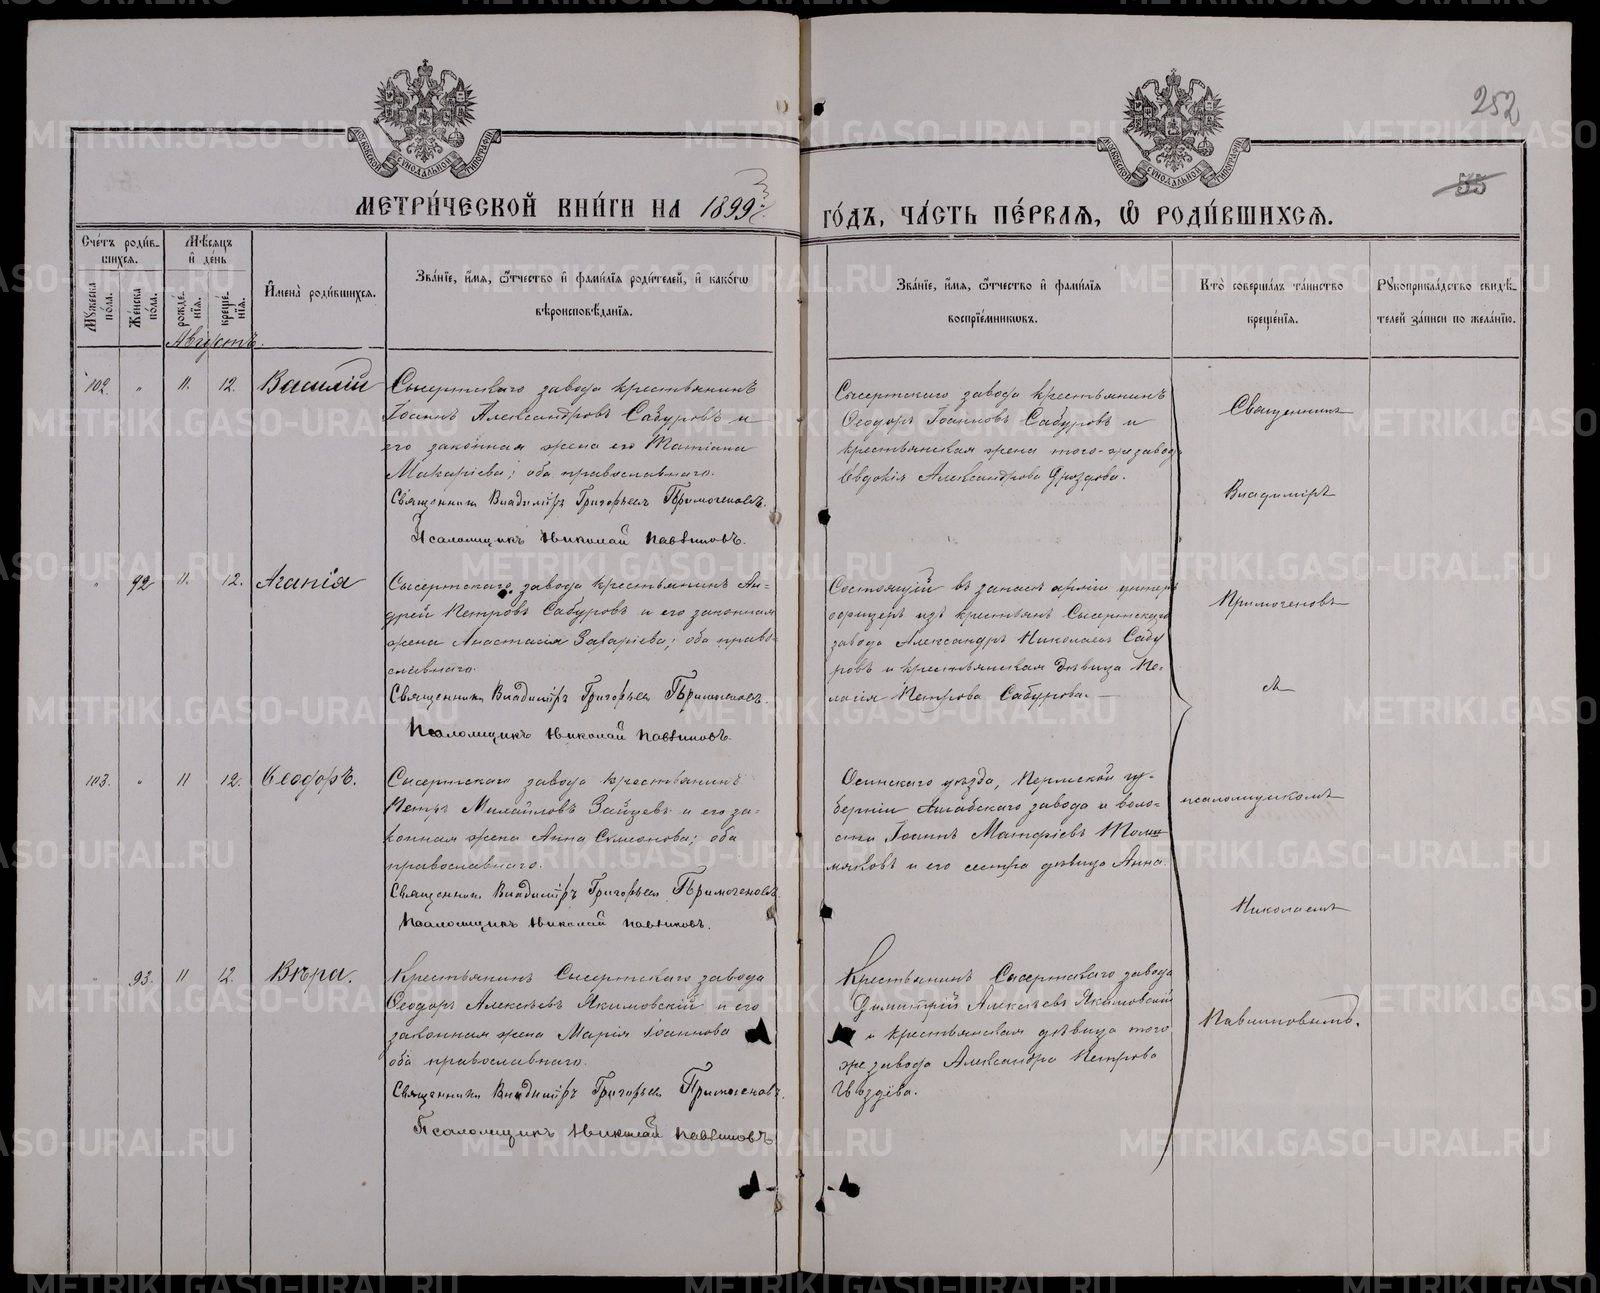 252
55
МОСКОВСКОЙ СѴНОДАЛЬНОЙ ТИПОГРАФІИ
МОСКОВСКОЙ СѴНОДАЛЬНОЙ ТИПОГРАФІИ
МЕТРИ́ЧЕСКОЙ КНИ́ГИ НА 1899
ГО́ДЪ, ЧА́СТЬ ПЕ́РВАЯ, Ѽ РОДИ́ВШИХСЯ.
Сче́тъ роди́вшихся.
Му́жеска по́ла.
Же́нска по́ла.
Мѣ́сяцъ и де́нь
рожде́нія.
креще́нія.
И́мена роди́вшихся.
Зва́ніе, и́мя, ѻ҆́тчество и фами́лія роди́телей, и како́гѡ
вѣроисповѣ́данія.
Зва́ніе, и́мя, ѻ҆́тчество и фами́лія
воспріе́мникѡвъ.
Кто̀ соверша́лъ та́инство
креще́нія.
Рукоприкла́дство свидѣ́-
телей за́писи по жела́нію.
Августъ.
102 " 11. 12. Василій
Сысертскаго завода крестьянинъ
Іоаннъ Александровъ Сабуровъ и
его законная жена его Татіана
Макаріева; оба православнаго.
Священникъ Владиміръ Григорьевъ Примогеновъ.
Псаломщикъ Николай Павлиновъ.
Сысертскаго завода крестьянинъ
Ѳеодоръ Іоанновъ Сабуровъ и
крестьянская жена того-же завода
Евдокія Александрова Дроздова.
" 92 11. 12. Агапія
Сысертскаго завода крестьянинъ Ан-
дрей Петровъ Сабуровъ и его законная
жена Анастасія Захаріева; оба право-
славнаго.
Священникъ Владиміръ Григорьевъ Примогеновъ.
Псаломщикъ Николай Павлиновъ.
Состоящій въ запасѣ арміи унтеръ
офицеръ изъ крестьянъ Сысертскаго
завода Александръ Николаевъ Сабу
ровъ и крестьянская дѣвица Пе-
лагія Петрова Сабурова.
103. " 11 12. Ѳеодоръ.
Сысертскаго завода крестьянинъ
Петръ Михайловъ Зайцевъ и его за-
конная жена Анна Симеонова; оба
православнаго.
Священникъ Владиміръ Григорьевъ Примогеновъ
Псаломщикъ Николай Павлиновъ.
Осинскаго уѣзда, Пермской гу-
берніи Ашабскаго завода и воло-
сти Іоаннъ Матфіевъ
и его сестра дѣвица Анна.
" 93. 11 12. Вѣра.
Крестьянинъ Сысертскаго завода
Ѳеодоръ Алексѣевъ Якимовскій и его
законная жена Марія Іоаннова
оба православнаго.
Священникъ Владиміръ Григорьевъ Примогеновъ.
Псаломщикъ Николай Павлиновъ
Крестьянинъ Сысертскаго завода
Димитрій Алексѣевъ Якимовскій
и крестьянская дѣвица того
же завода Александра Петрова
Гвоздева.
Священникъ
Владиміръ
Примогеновъ
съ
псаломщикомъ
Николаемъ
Павлиновымъ.
METRIKI.GASO-URAL.RU